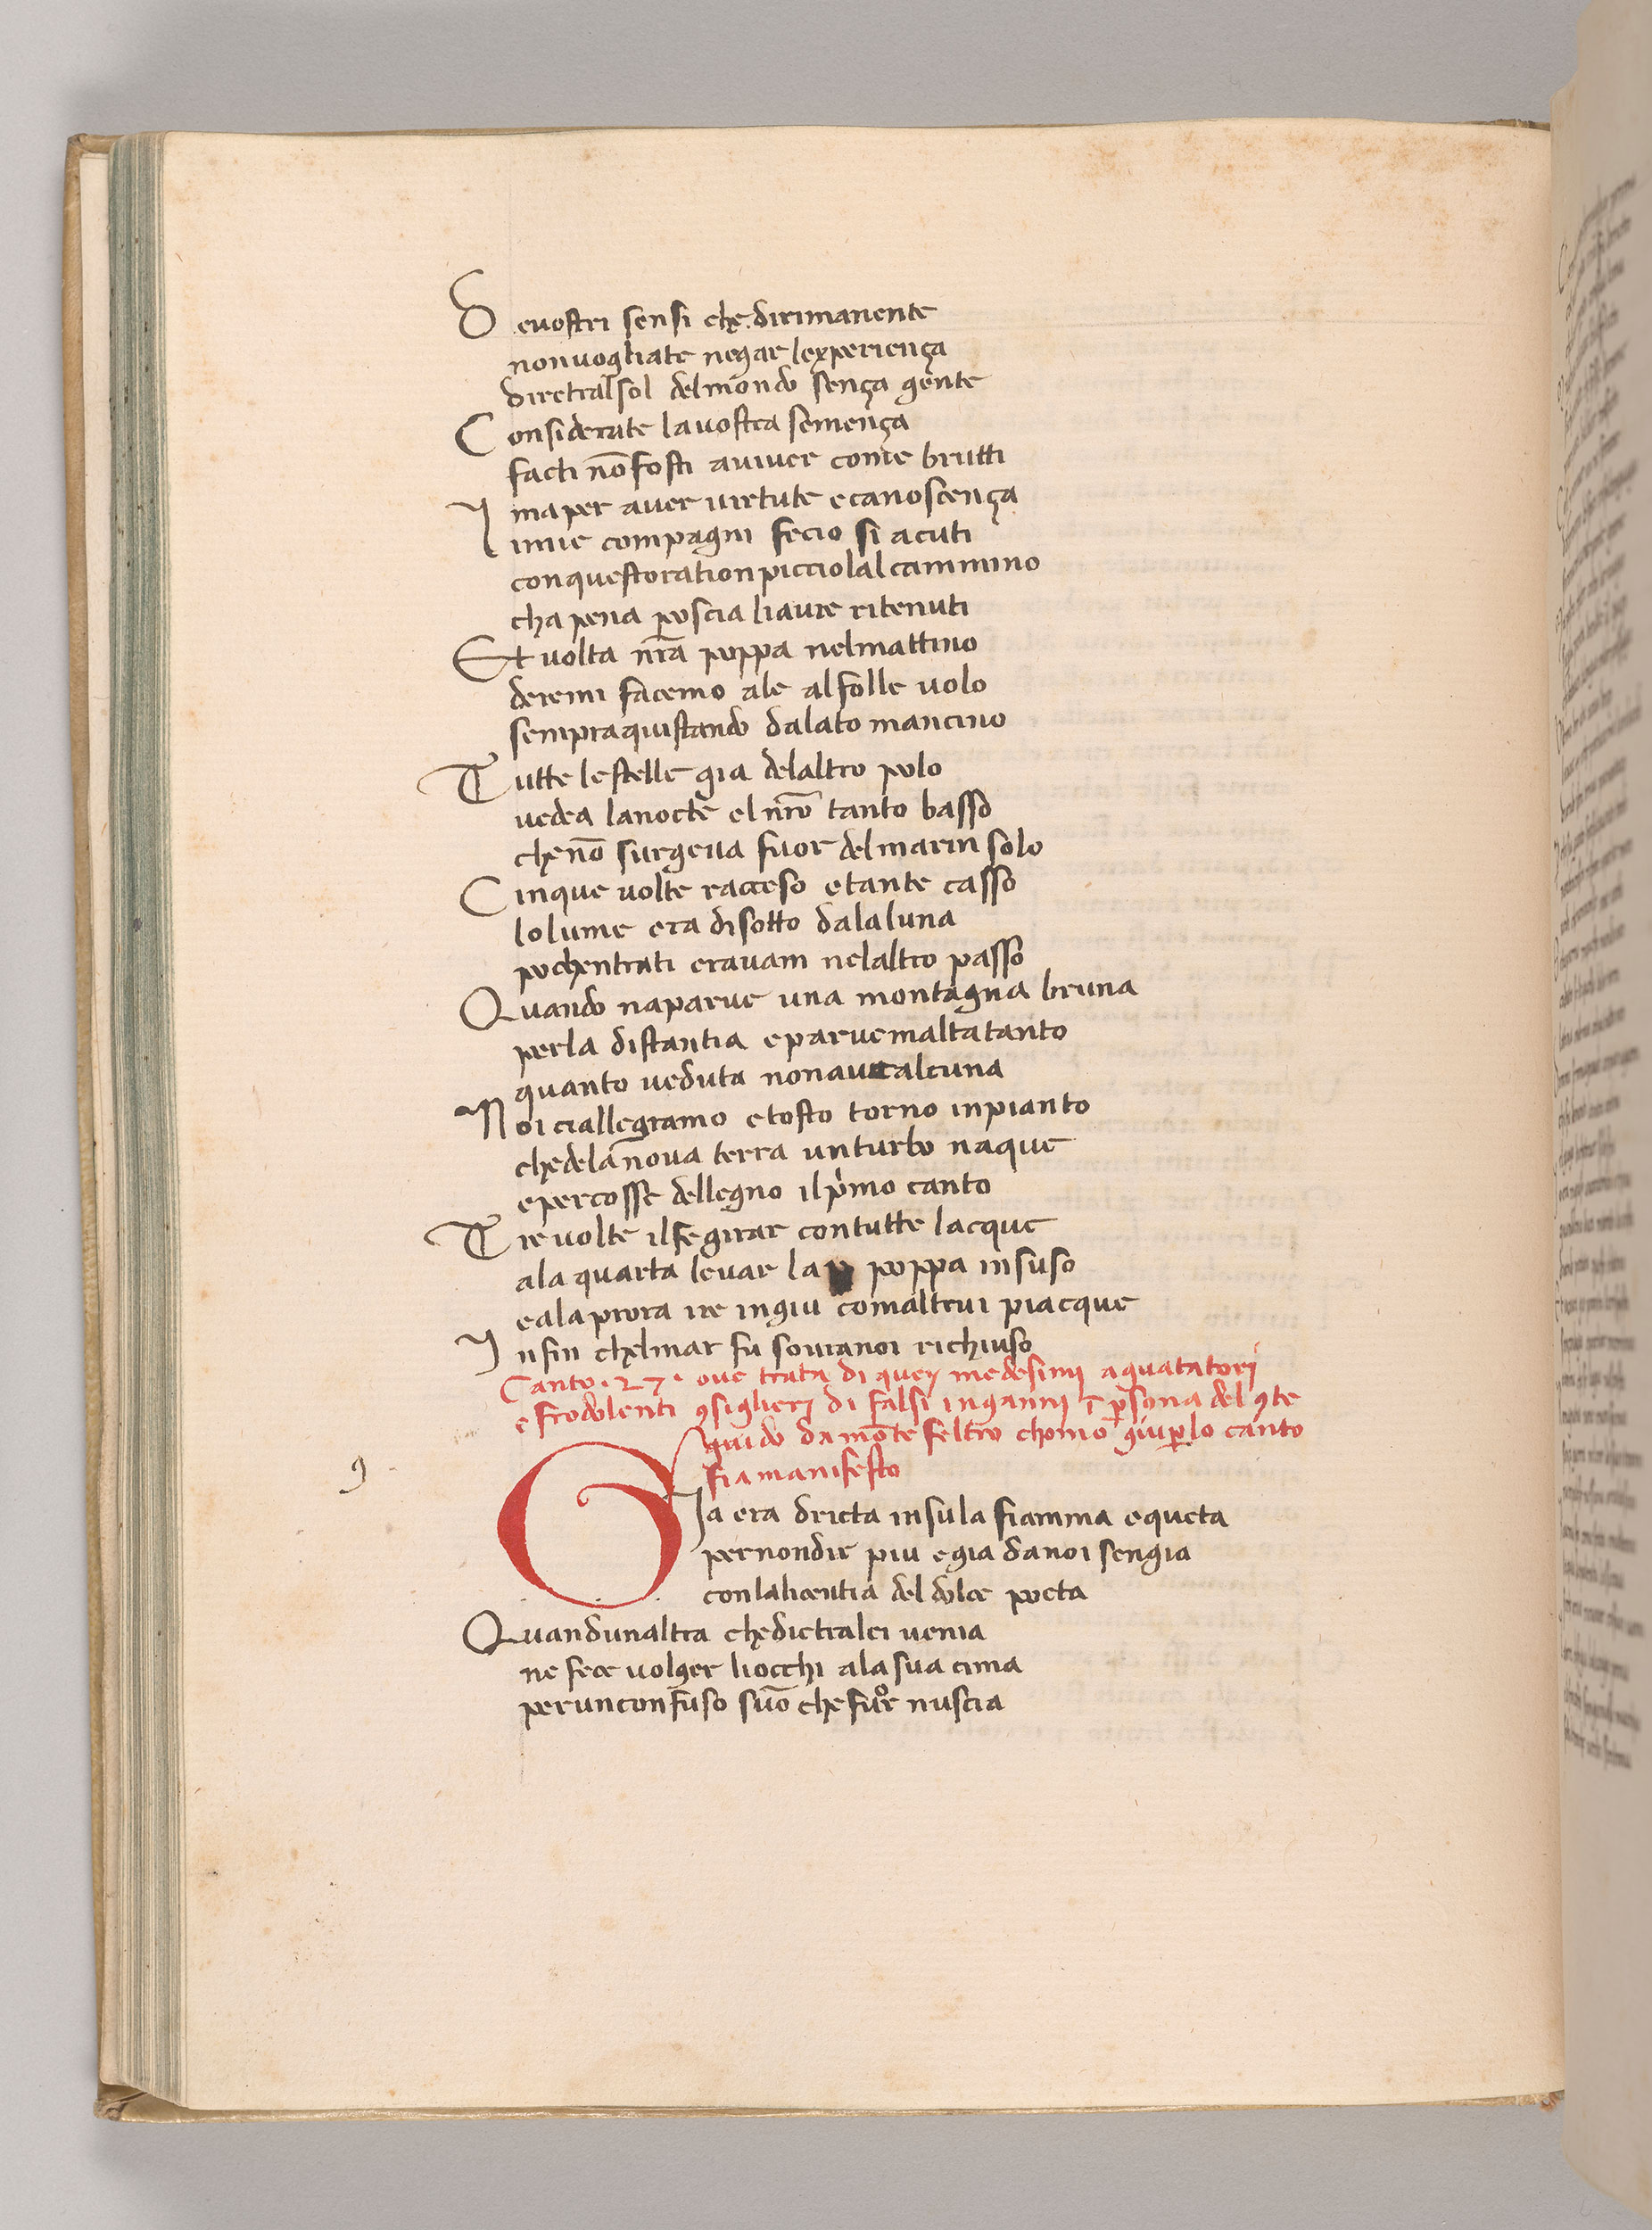 D evostri sensi che. dirimanente
nonuogliate negar lexperiença
diretralsol delmondo sença gente
C onsiderate lauostra semença
facti nō fosti auiuer come brutti
maper auer uirtute ecanoscença
I imie compagni fecio si acuti
conquestoration picciolal cammino
cha pena poscia liaure ritenuti
Et uolta nr̄a poppa nelmattino
deremi facemo ale alfolle uolo
sempraquistando dalato mancino
T utte lestelle gia delaltro polo
uedea lanocte el nr̄o tanto basso
che nō surgeua fuor delmarin solo
C inque uolte racceso etante casso
lolume era disotto dalaluna
pochentrati erauam nelaltro passo
Q uando naparue una montagna bruna
perla distantia eparuemaltatanto
quanto ueduta nonauealcuna
N oi ciallegramo etosto torno inpianto
chedelanoua terra unturbo naque
epercosse dellegno ilpͥmo canto
T re uolte ilfegirar contutte lacque
ala quarta leuar la poppa insuso
eala prora ire ingiu comaltrui piacque
I nfin chelmar fu souranoi richiuso
Canto · 27 · oue trata di quej medesimj aguatatorj
e frodolenti ꝯsiglierj di falsi ingannj ꞇ ꝑsona del ꝯte
guido da mōte feltro chomo quiꝑlo canto
fia manifesto
9
G Ia era dricta insula fiamma equeta
pernondir piu egia danoi sengia
conlalicentia del dolce poeta
Q uandunaltra chedietralei uenia
ne fece uolger liocchi ala sua cima
perunconfuso suō che fuor nuscia